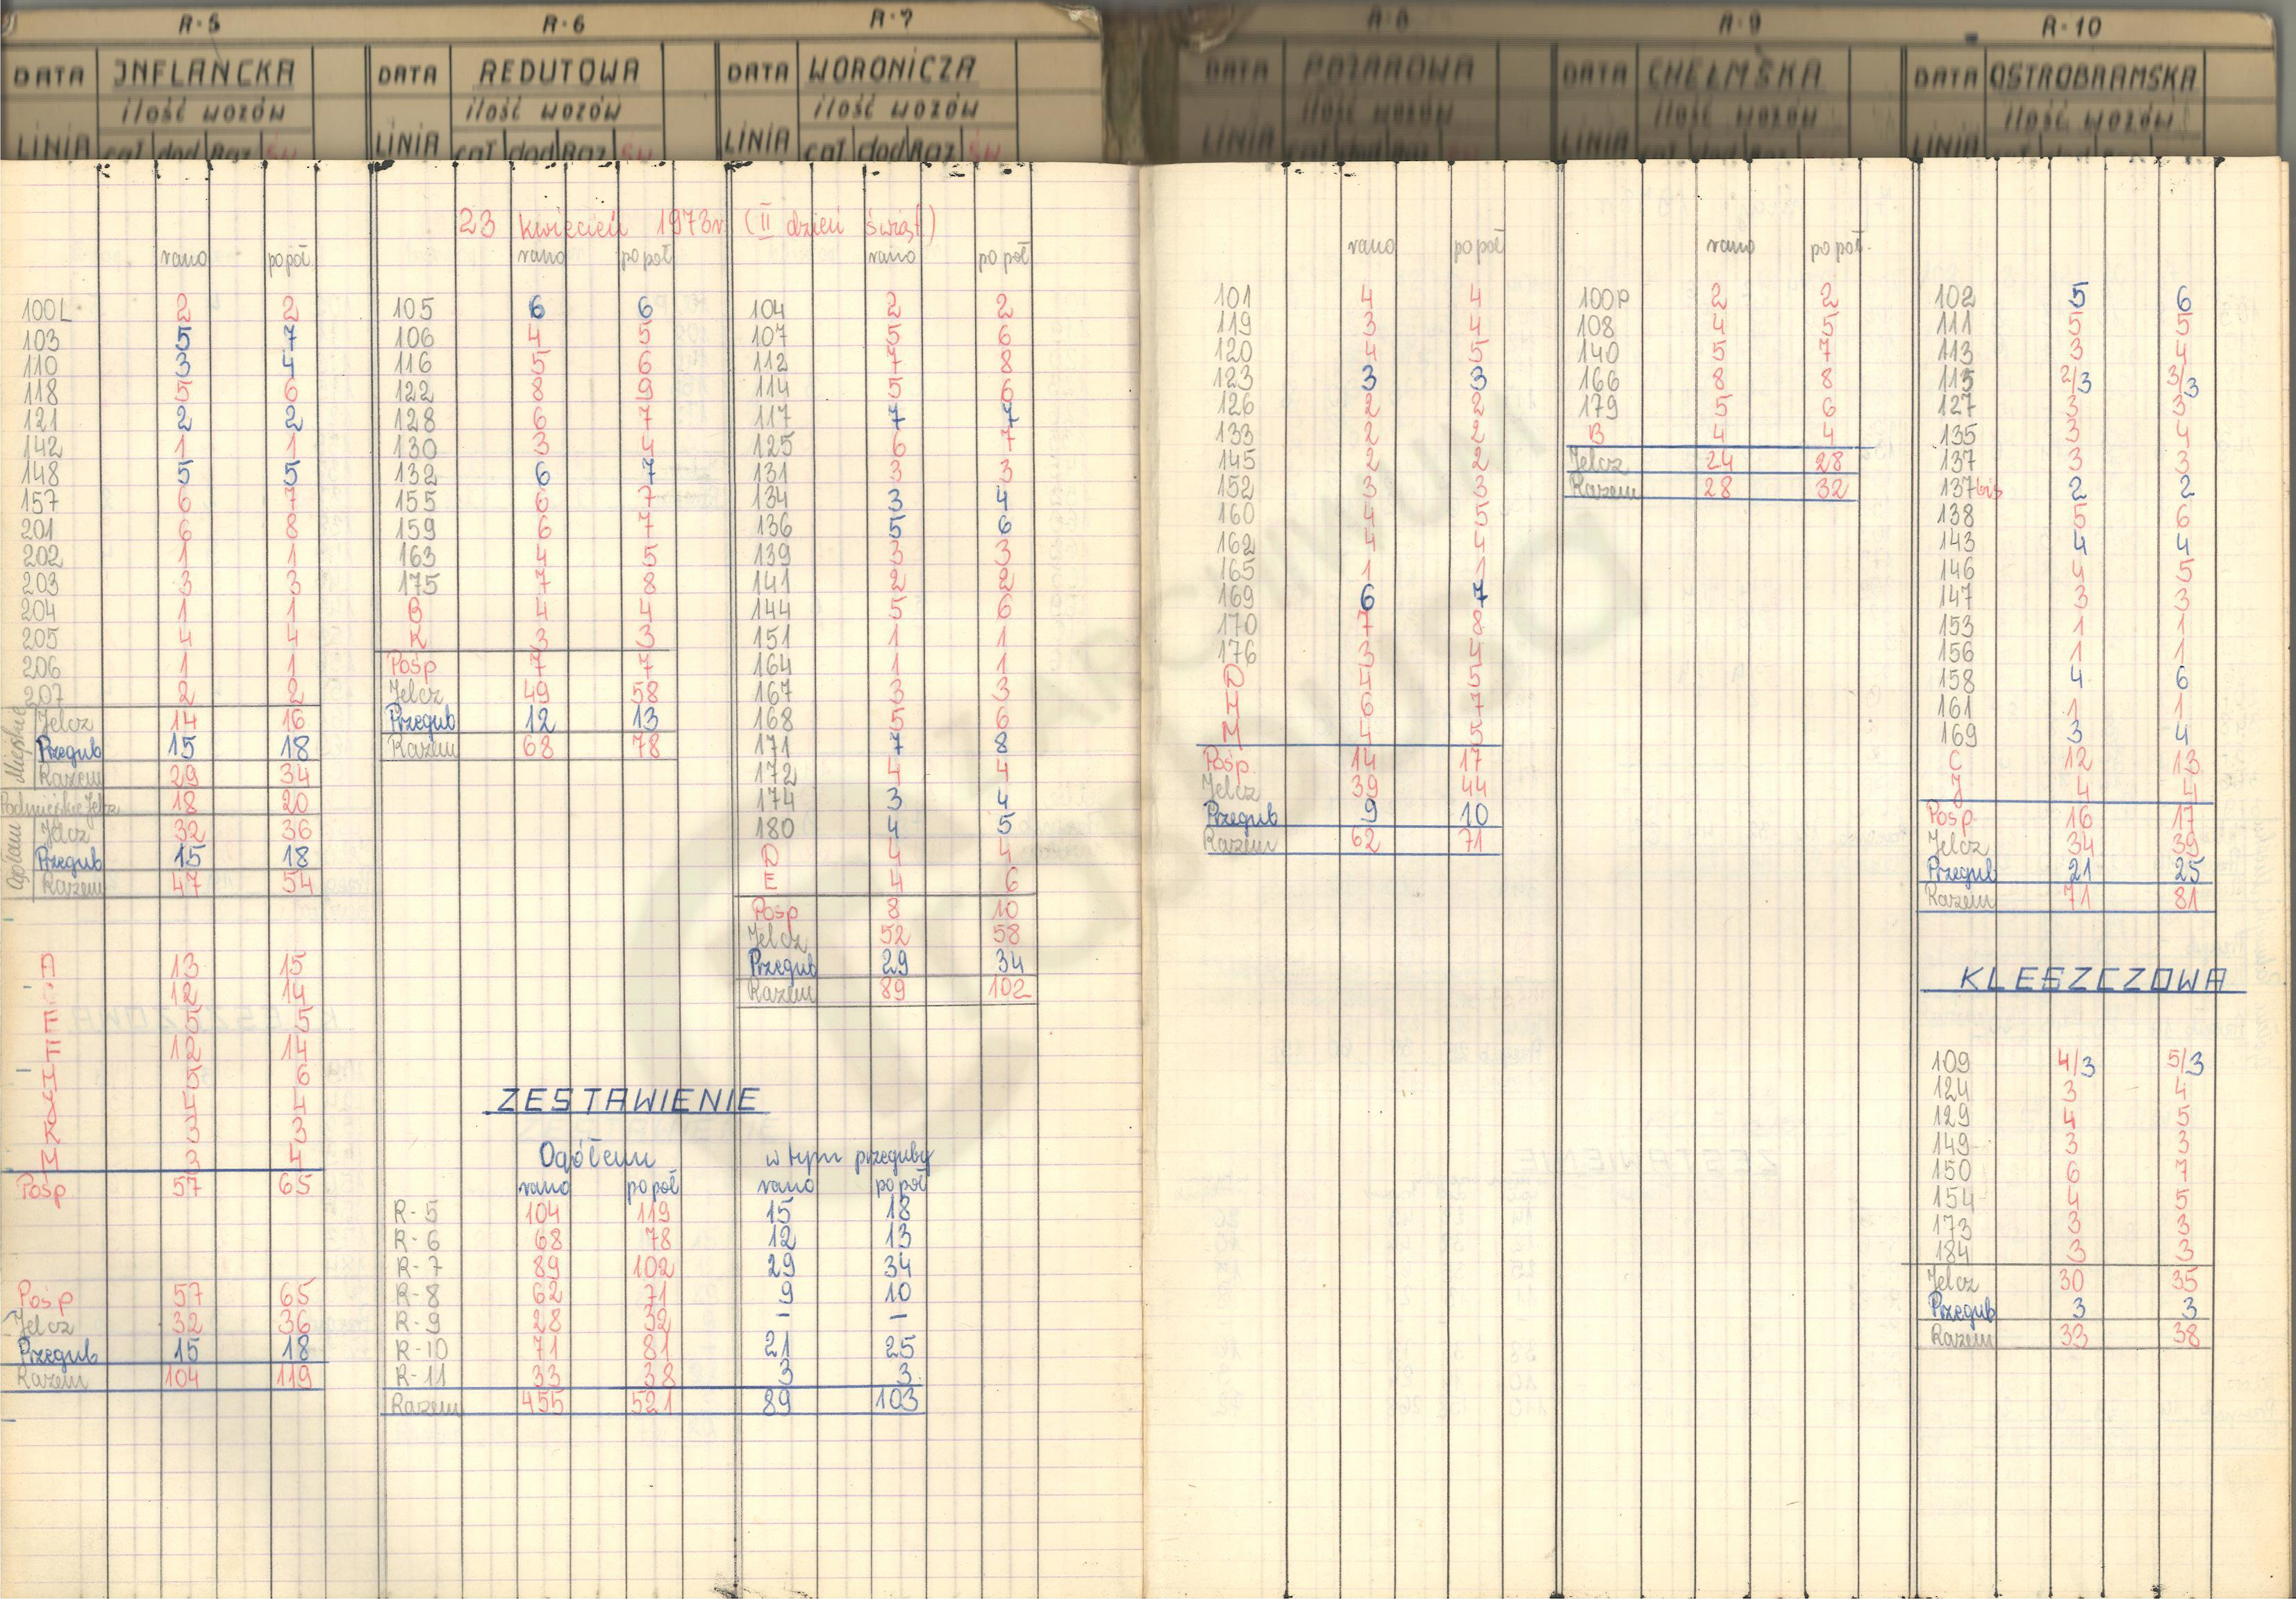 R-5
DATA INFLANCKA
ilość wozów
LINIA cał dod Raz św
R-6
DATA REDUTOWA
ilość wozów
LINIA cał dod Raz św
R-7
DATA WORONICZA
ilość wozów
LINIA cał dod Raz św
R-8
DATA POŻAROWA
ilość wozów
LINIA cał dod Raz św
R-9
DATA CHEŁMSKA
ilość wozów
LINIA cał dod Raz św
R-10
DATA OSTROBRAMSKA
ilość wozów
LINIA
23 kwiecień 1973r (II dzień świąt)
rano po poł.
100L 2 2
103 5 7
110 3 4
118 5 6
121 2 2
142 1 1
148 5 5
157 6 7
201 6 8
202 1 1
203 3 3
204 1 1
205 4 4
206 1 1
207 2 2
Miejskie
Jelcz 14 16
Przegub 15 18
Razem 29 34
Podmiejskie Jelcz 18 20
Ogółem
Jelcz 32 36
Przegub 15 18
Razem 47 54
A 13 15
12 14
F 5 5
12 14
H 5 6
4 4
K 3 3
M 3 4
Pośp 57 65
Pośp 57 65
Jelcz 32 36
Przegub 15 18
Razem 104 119
rano po poł
105 6 6
106 4 5
116 5 6
122 8 9
128 6 7
130 3 4
132 6 7
155 6 7
159 6 7
163 4 5
175 7 8
B 4 4
K 3 3
Pośp 7 7
Jelcz 49 58
Przegub 12 13
Razem 68 78
rano po poł
104 2 2
107 5 6
112 7 8
114 5 6
117 7 7
125 6 7
131 3 3
134 3 4
136 5 6
139 3 3
141 2 2
144 5 6
151 1 1
164 1 1
167 3 3
168 5 6
171 7 8
172 4 4
174 3 4
180 4 5
D 4 4
E 4 6
Pośp 8 10
Jelcz 52 58
Przegub 29 34
Razem 89 102
ZESTAWIENIE
Ogółem w tym przeguby
rano po poł rano po poł
R-5 104 119 15 18
R-6 68 78 12 13
R-7 89 102 29 34
R-8 62 71 9 10
R-9 28 32 - -
R-10 71 81 21 25
R-11 33 38 3 3
Razem 455 521 89 103
rano po poł
101 4 4
119 3 4
120 4 5
123 3 3
126 2 2
133 2 2
145 2 2
152 3 3
160 4 5
162 4 4
165 1 1
169 6 7
170 7 8
176 3 4
D 4 5
H 6 7
M 4 5
Pośp. 14 17
Jelcz 39 44
Przegub 9 10
Razem 62 71
rano po poł.
100P 2 2
108 4 5
140 5 7
166 8 8
179 5 6
B 4 4
Jelcz 24 28
Razem 28 32
102 5 6
111 5 5
113 3 4
115 2/3 3/3
127 3 3
135 3 4
137 3 3
137bis 2 2
138 5 6
143 4 4
146 4 5
147 3 3
153 1 1
156 1 1
158 4 6
161 1 1
169 3 4
C 12 13
J 4 4
Pośp. 16 17
Jelcz 34 39
Przegub 21 25
Razem 71 81
KLESZCZOWA
109 4/3 5/3
124 3 4
129 4 5
149 3 3
150 6 7
154 4 5
173 3 3
184 3 3
Jelcz 30 35
Przegub 3 3
Razem 33 38